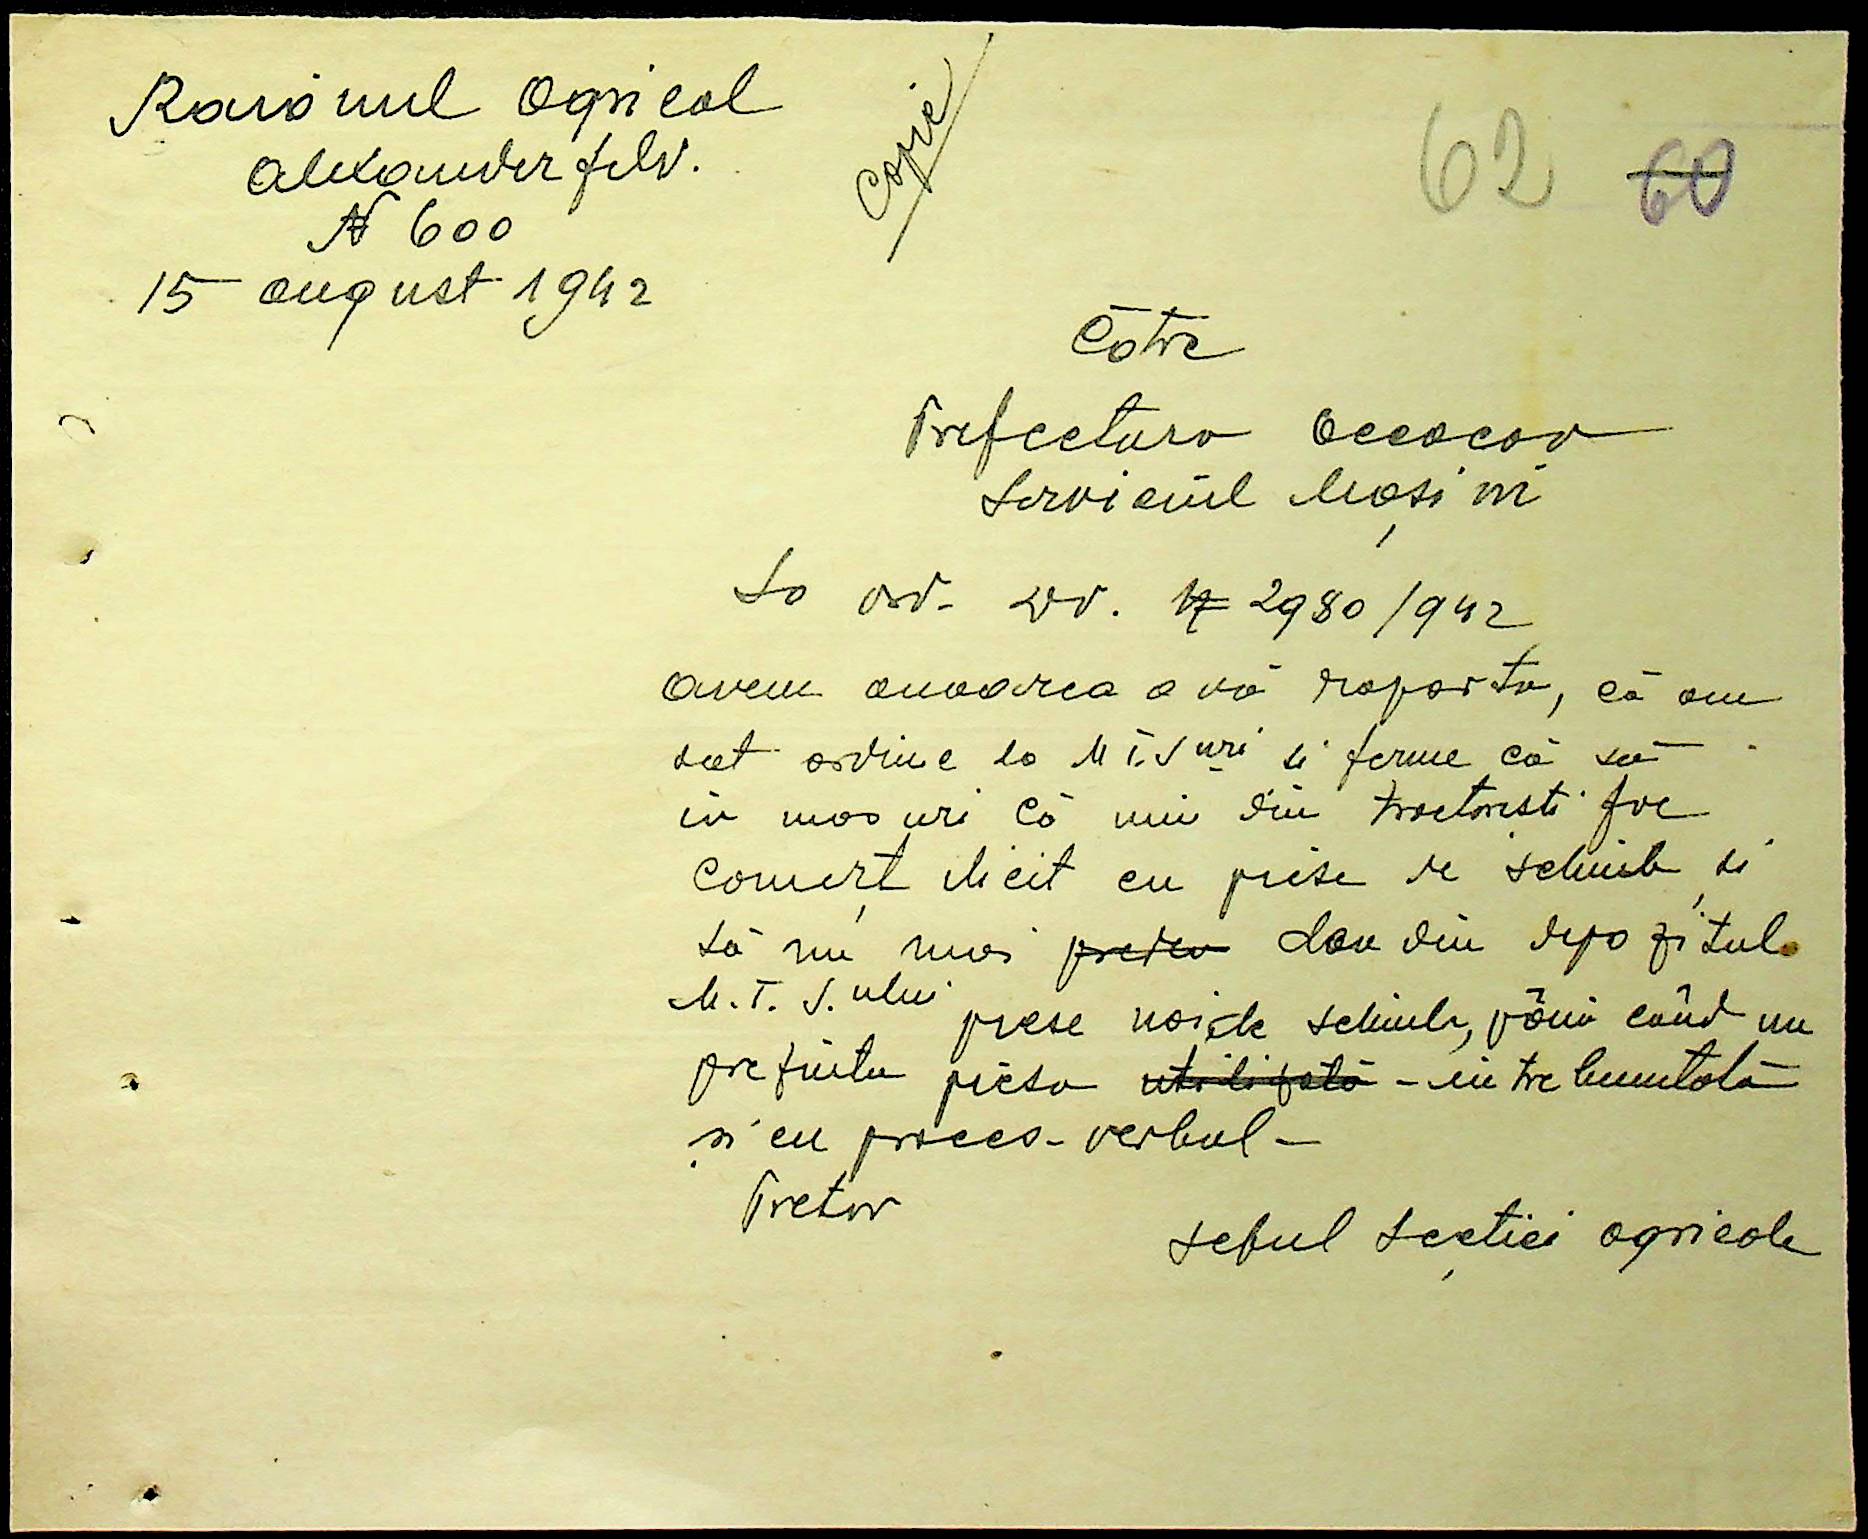 Raionul Agricol
Alexanderfeld.
N 600
15 august 1942
Copie
62 60
Cōtre
Prefectura Oceacov
Serviciul Mașini
La ord. Dv. N 2980/942
Avem onoarea a vă raporta, că am
dat ordine la M.T.S uri si ferme că să
ia masuri că unii din tractoristi fac
comerț ilicit cu piese de schimb și
să nu mai predea dau din depozitul
M.T.S. ului piese noi de schimb, până când nu
prezinta piesa utilizată - intrebuintată
și cu proces-verbal -
Pretor
Seful Secției agricole